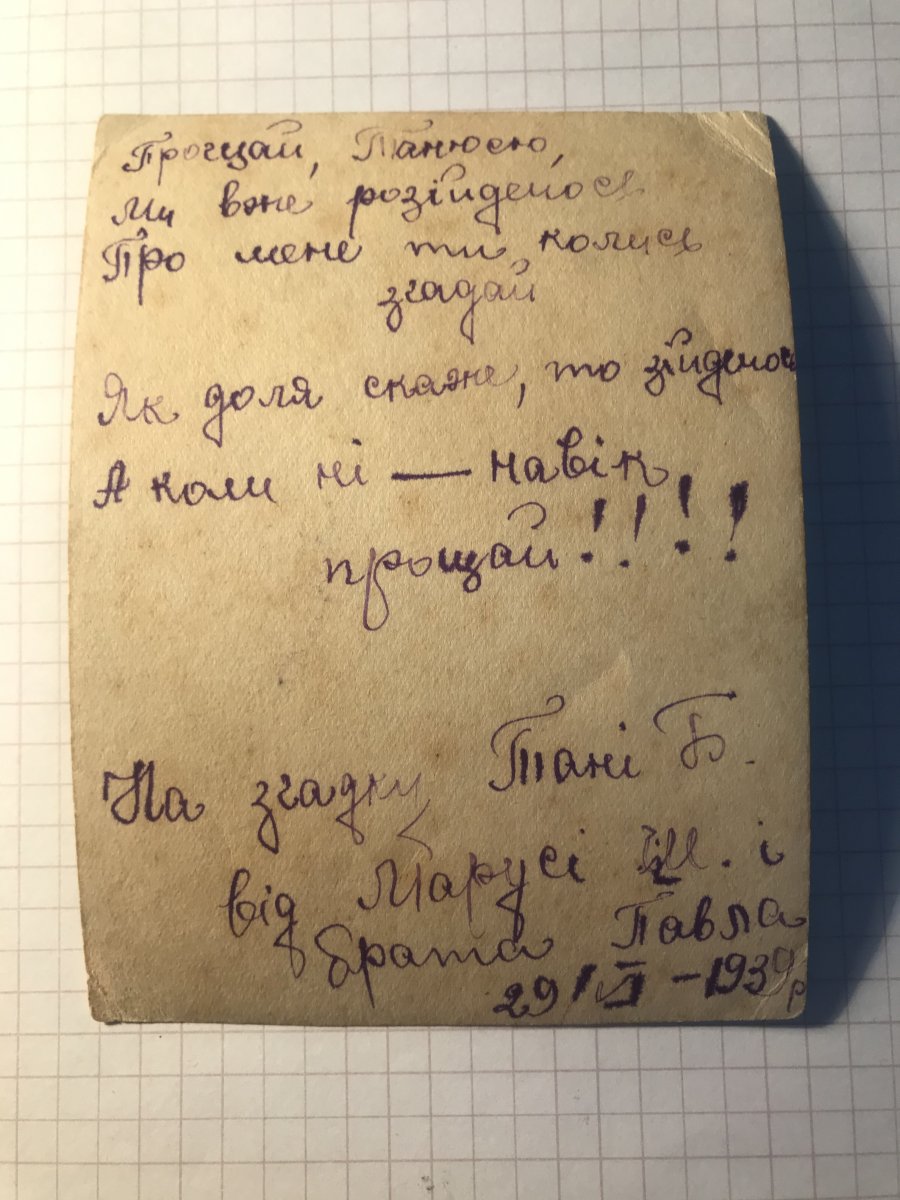 Прощай, Танюсю,
Ми вже розійдемось
Про мене ти колись
згадай
Як доля скаже, то зійдемось
А коли ні — навік
прощай!!!!
На згадку Тані Б.
від Марусі Ш. і
брата Павла
29/VI – 1939р